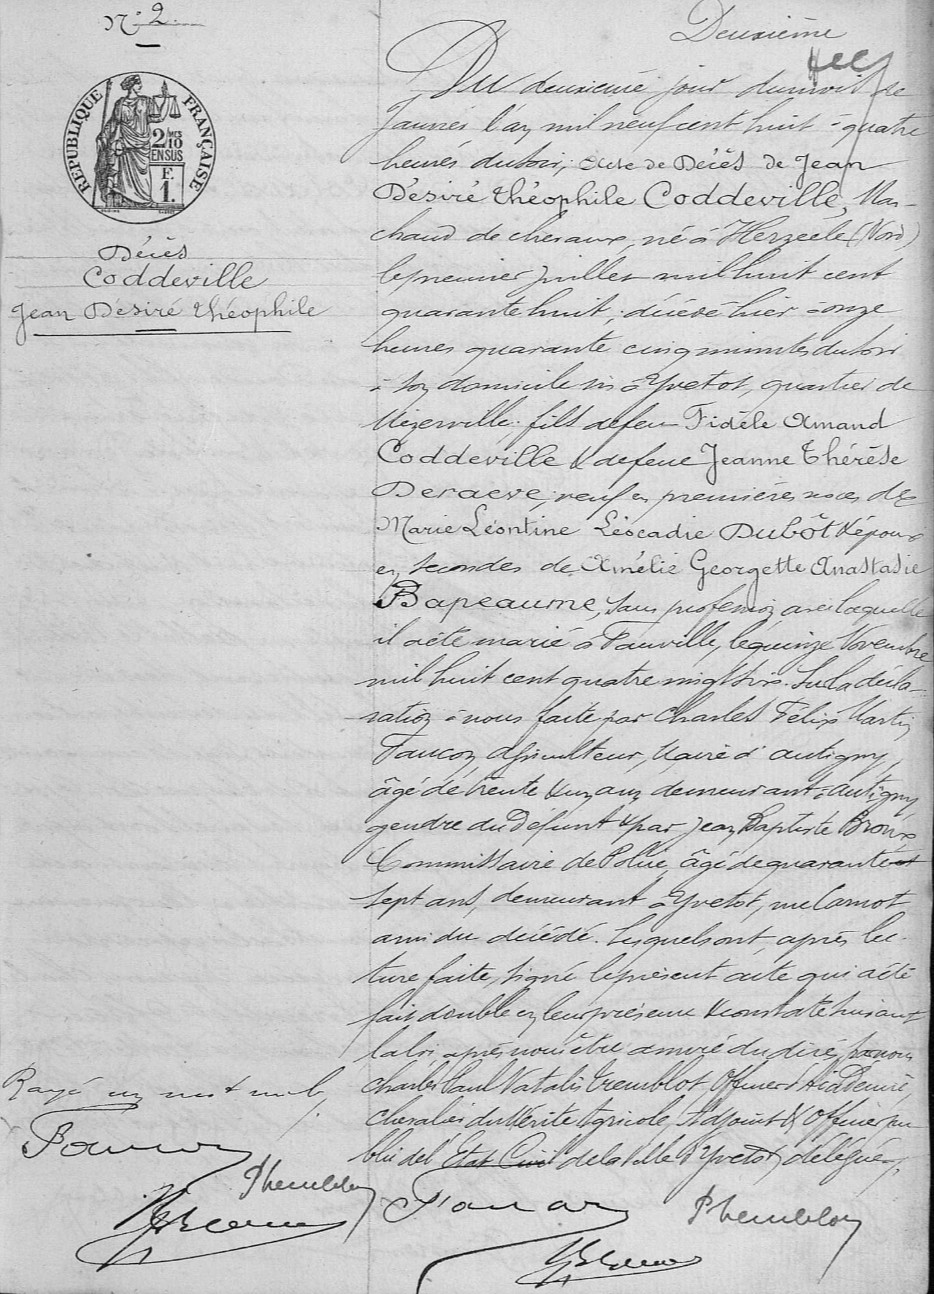 N° 2
Deuxième
RÉPUBLIQUE FRANÇAISE
2/10 MES
EN SUS
F.
1.
Décès
Coddeville
Jean Désiré Théophile
Du deuxième jour du mois de
Janvier l'an mil neuf cent huit à quatre
heures du soir, Acte de Décès de Jean
Désiré Théophile Coddeville, Mar-
chand de chevaux, né à Herzeele (Nord)
le premier juillet mil huit cent
quarante huit, décédé hier à onze
heures quarante cinq minutes du soir
à son domicile sis à Yvetot, quartier de
Rézerville, fils de feu Fidèle Amand
Coddeville & de feue Jeanne Thérèse
Deraeve, veuf en premières noces de
Marie Léontine Léocadie Dubôt & époux
en secondes de Amélie Georgette Anastasie
Bapeaume, sans profession avec laquelle
il a été marié à Fauville, le quinze Novembre
mil huit cent quatre vingt Sur la décla-
ration à nous faite par Charles Félix Martin
Faucon, Agriculteur, Maire d'Autigny,
âgé de trente & un ans demeurant à Autigny
gendre du Défunt & par Jean Baptiste
Commissaire de Police, âgé de quarante
sept ans, demeurant à Yvetot, rue Carnot,
ami du décédé. Lesquels ont, après lec-
ture faite, signé le présent acte qui a été
fait double en leur présence & constaté suivant
la loi, après nous être assuré du décès, par nous
Charles Paul Natalis Tremblot, Officier d'Académie
Chevalier du Mérite Agricole, Adjoint & Officier pu
blic de l'Etat Civil de la ville d'Yvetot, délégué.
Rayé un mot nul.
Faucon
PTremblot
Faucon
PTremblot